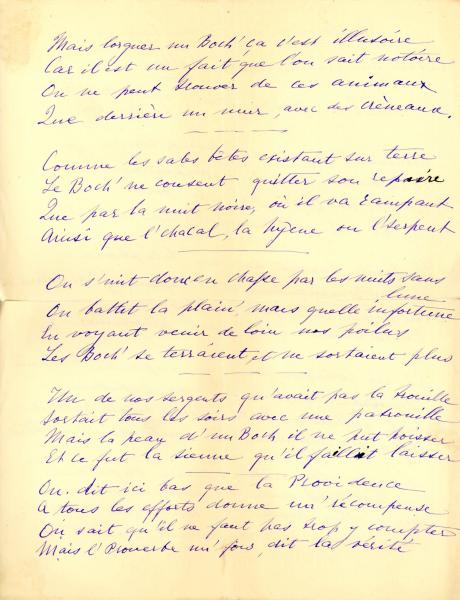 Mais lorgner un Boch' ça c'est illusoire
Car il est un fait que l'on sait notoire
On ne peut trouver de ces animaux
Que derrière un mur, avec des crèneaux.
Comme les sales bêtes existant sur terre
Le Boch' ne consent quitter son repaire
Que par la nuit noire, où il va rampant
Ainsi que l'chacal, la hyène ou l'serpent
On s'mit donc en chasse par les nuits sans lune
On battit la plain', mais quelle infortune
En voyant venir de loin nos poilus
Les Boch' se terraient, et ne sortaient plus
Un de nos sergents qu'avait pas la trouille
Sortait tous les soirs avec une patrouille
Mais la peau d'un Boch il ne put poisser
Et ce fut la sienne qu'il faillit laisser
On dit ici bas que la Providence
A tous les efforts donne un' récompense
On sait qu'il ne faut pas trop y compter
Mais l'Proverbe un' fois, dit la vérité